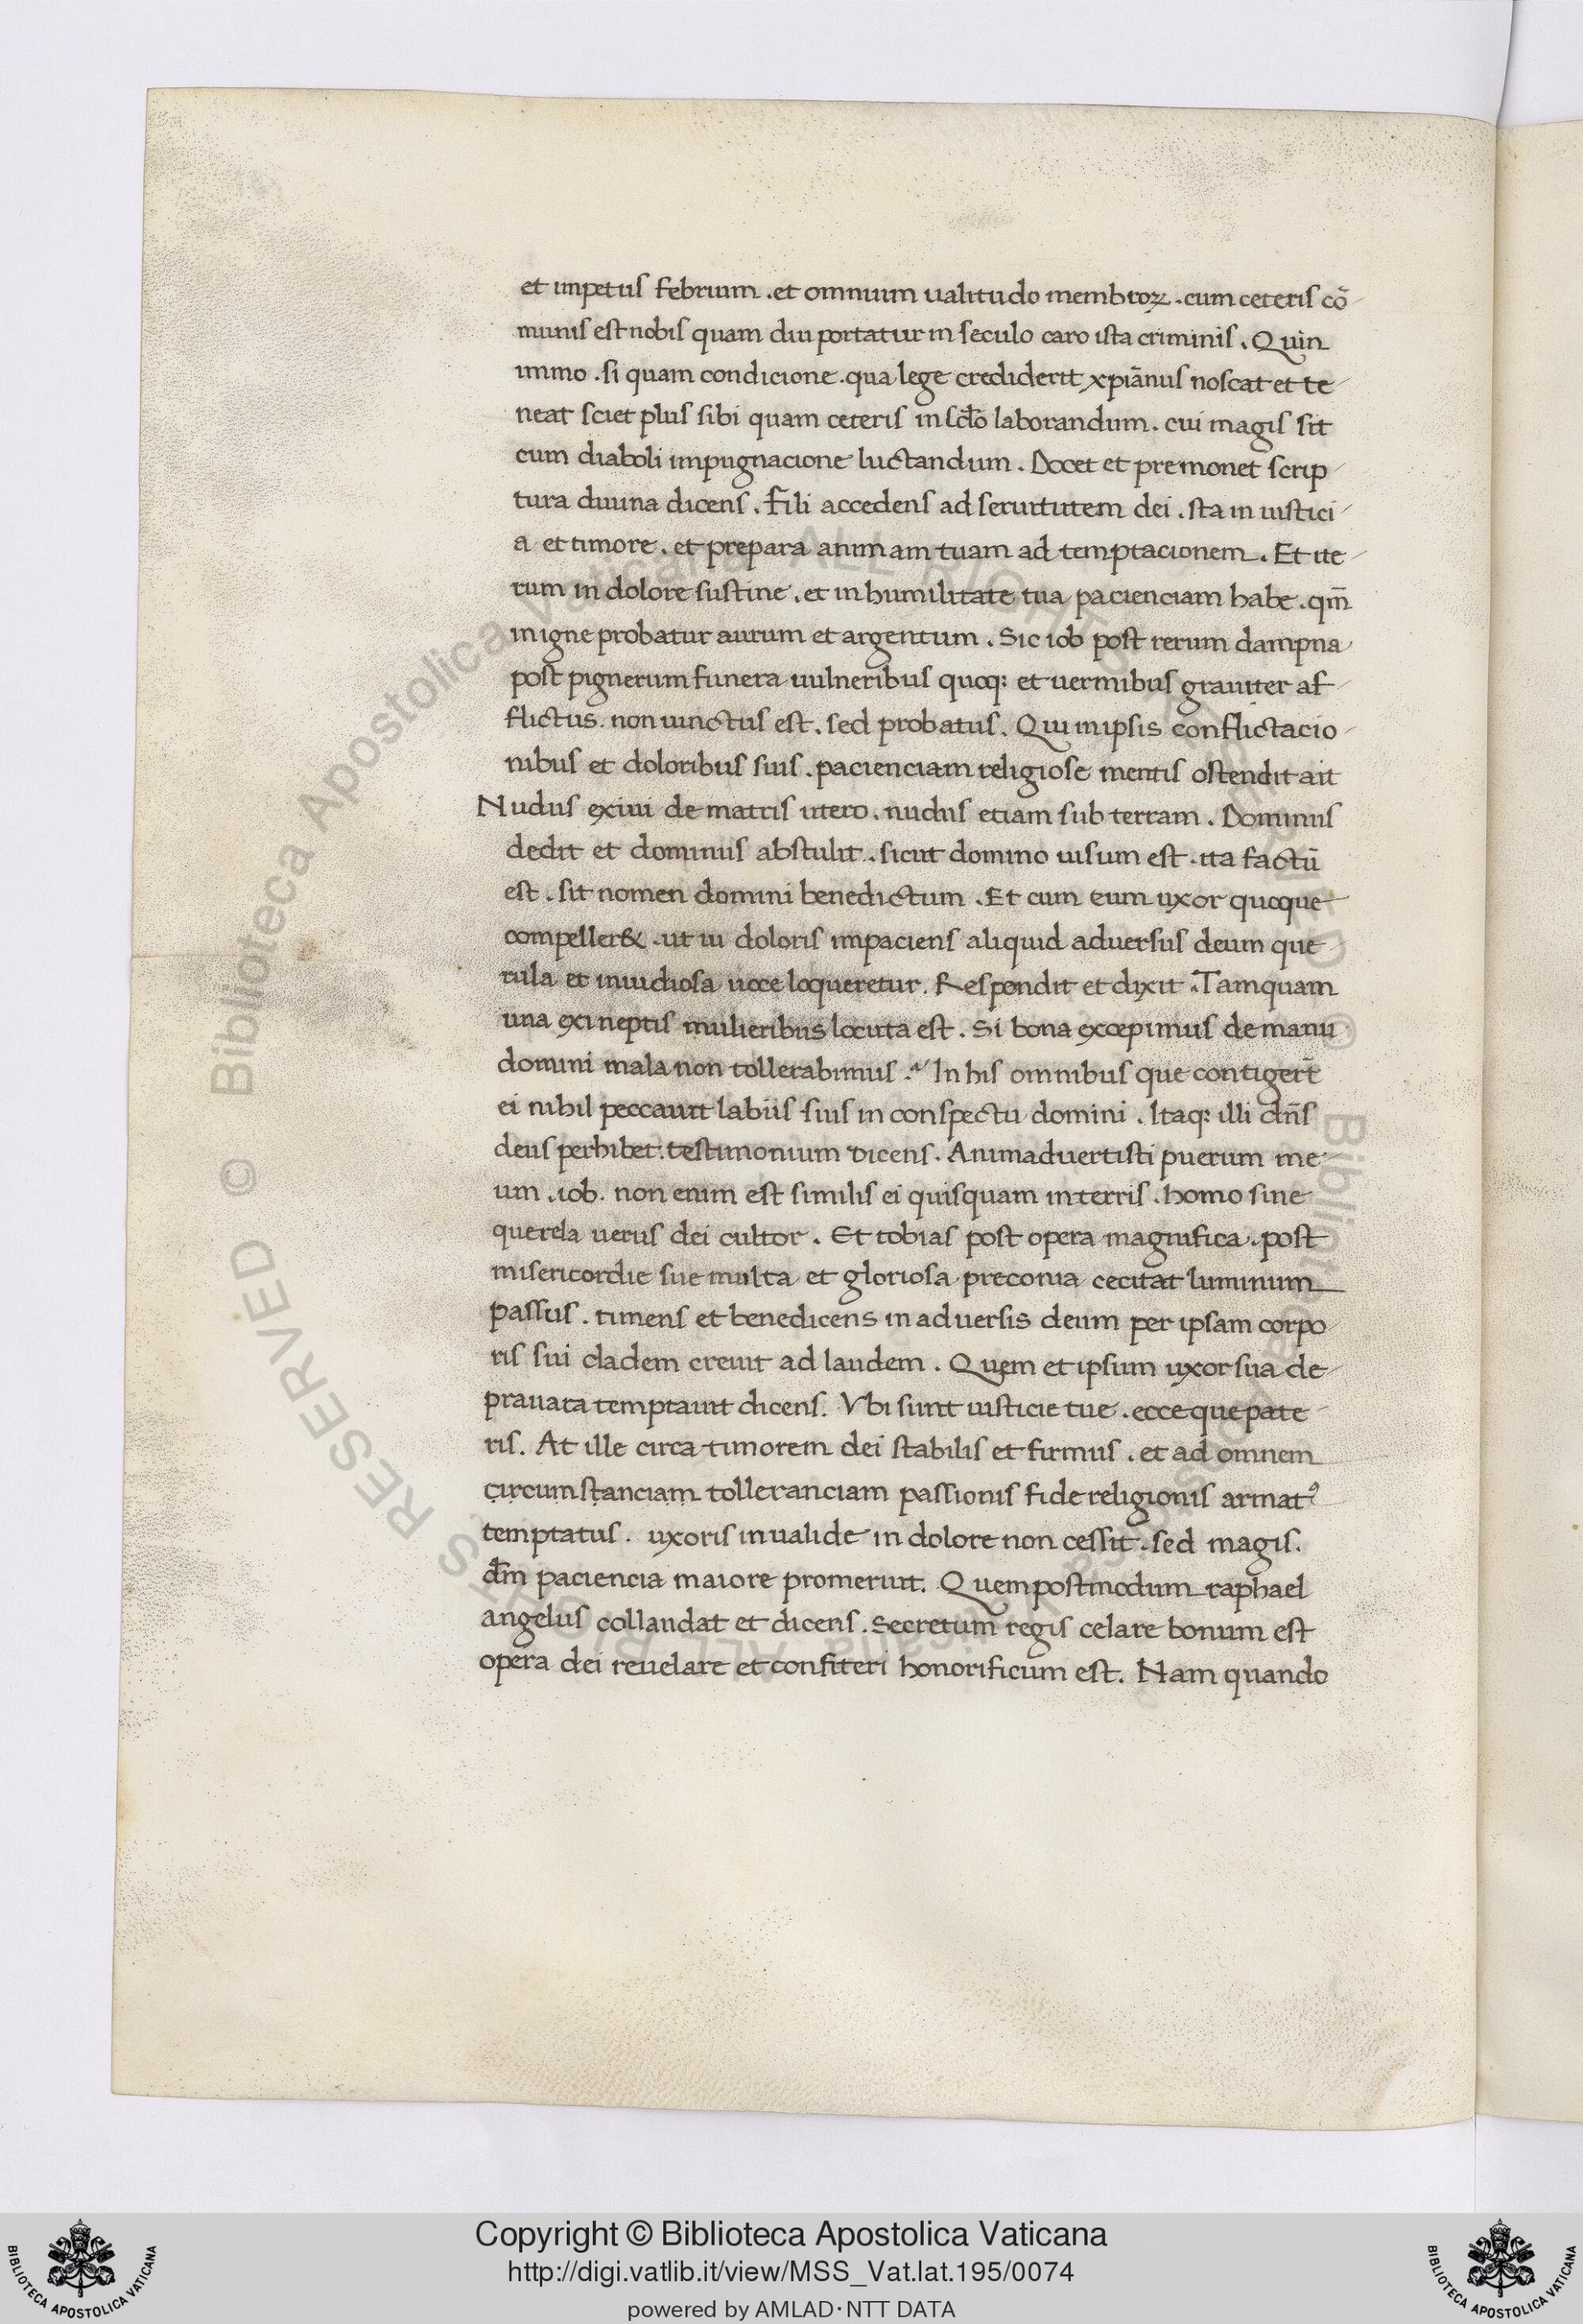 et impetus febrium . et omnium ualitudo membroꝝ . cum ceteris cō
munis est nobis quam diu portatur in seculo caro ista criminis . Quin
immo . si quam condicione . qua lege crediderit xpiānus noscat et te
neat sciet plus sibi quam ceteris in sclo laborandum . cui magis sit
cum diaboli impugnacione luctandum . Docet et premonet scrip
tura diuina dicens . Fili accedens ad seruitutem dei . sta in iustici
a et timore . et prepara animam tuam ad temptacionem . Et ite
rum in dolore sustine . et in humilitate tua pacienciam habe . qm̄
in igne probatur aurum et argentum . Sic iob post rerum dampna
post pignerum funera uulneribus quoq: et uermibus grauiter af
flictus . non uinctus est . sed probatus . Qui in ipsis conflictacio
nibus et doloribus suis . pacienciam religiose mentis ostendit ait
Nudus exiui de matris utero . nudus etiam sub terram . Dominus
dedit et dominus abstulit . sicut domino uisum est . ita factū
est . sit nomen domini benedictum . Et cum eum uxor quoque
compeller& . ut ui doloris impaciens aliquid aduersus deum que
rula et inuidiosa uoce loqueretur . Respondit et dixit . Tamquam
una ex ineptis mulieribus locuta est . Si bona excepimus de manu
domini mala non tollerabimus . In his omnibus que contigerē
ei nihil peccauit labiis suis in conspectu domini . Itaq: illi dn̄s
deus perhibet . testimonium dicens . Animaduertisti puerum me
um . iob . non enim est similis ei quisquam in terris . homo sine
querela uerus dei cultor . Et tobias post opera magnifica . post
misericordie sue multa et gloriosa preconia cecitat luminum
passus . timens et benedicens in aduersis deum per ipsam corpo
ris sui cladem creuit ad laudem . Quem et ipsum uxor sua de
prauata temptauit dicens . Vbi sunt iusticie tue . ecce que pate
ris . At ille circa timorem dei stabilis et firmus . et ad omnem
circumstanciam tolleranciam passionis fide religionis armatꝰ
temptatus . uxoris inualide in dolore non cessit . sed magis .
dm̄ paciencia maiore promeruit . Quem postmodum raphael
angelus collaudat et dicens . Secretum regis celare bonum est
opera dei reuelare et confiteri honorificum est . Nam quando
Copyright © Biblioteca Apostolica Vaticana
http://digi.vatlib.it/view/MSS_Vat.lat.195/0074
powered by AMLAD·NTT DATA
BIBLIOTECA APOSTOLICA VATICANA
BIBLIOTECA APOSTOLICA VATICANA